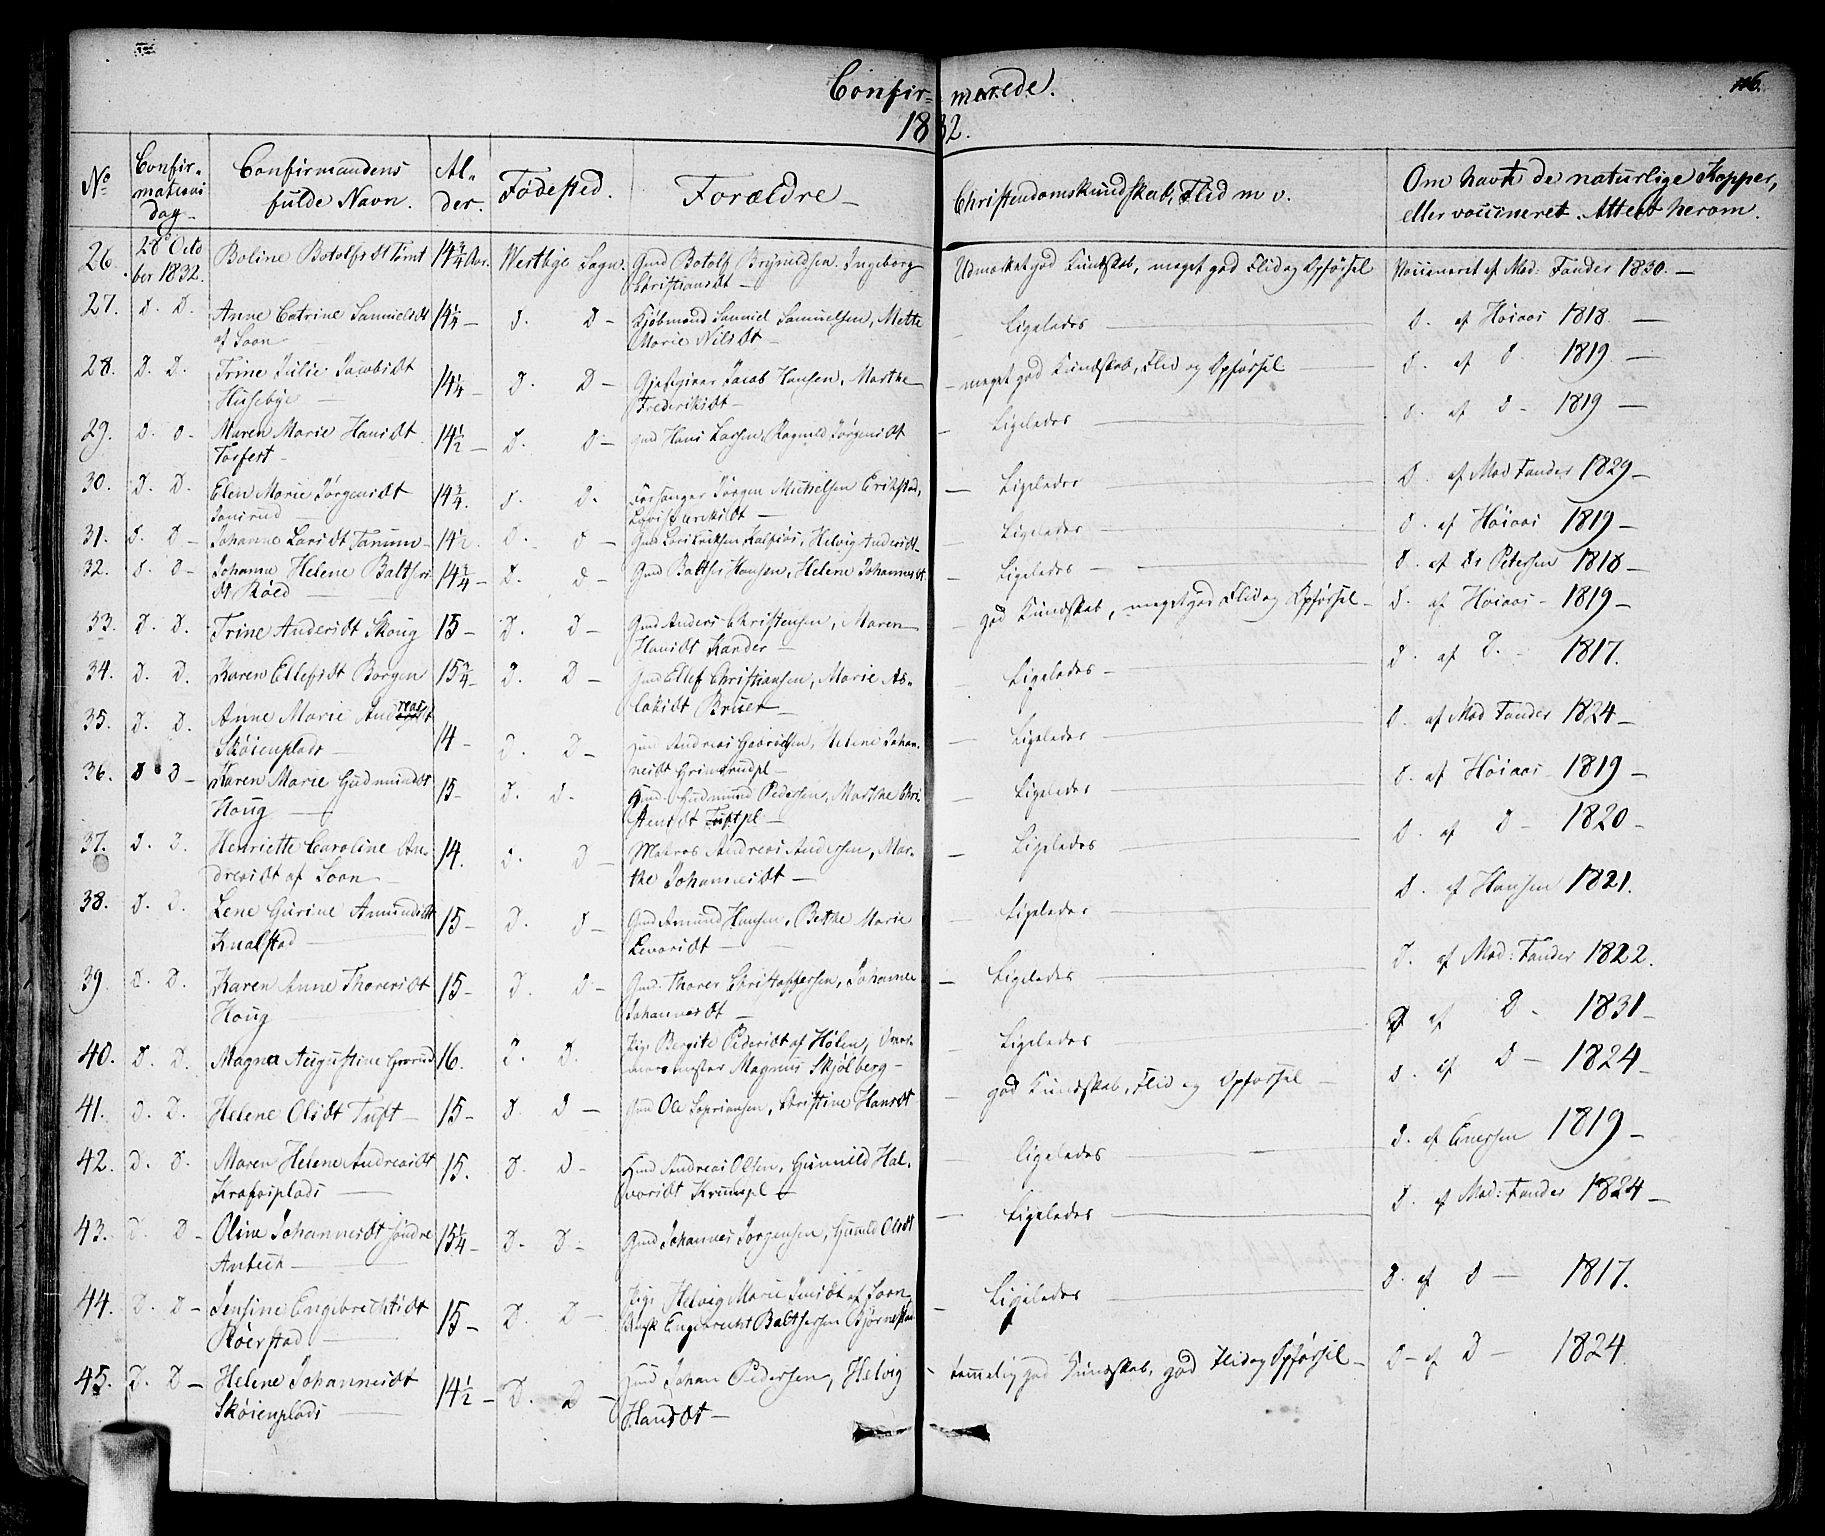 Confirmerede.
1832.
116.
No Confirmations dag Confirmandens fulde Navn. Alder. Fødested. Forældre Christendomskundskab, Flid m v. Om havt de naturlige Kopper, eller vaccineret. Attest herom.
26. 28 October 1832. Boline Botolfsdt Tomt 14 3/4 Aar. Westbye Sogn. Gmd Botolf Brynildsen, Ingeborg Christiansdt Udmærket god Kundskab, meget god Flid og Opførsel Vaccineret af Mad: Fander 1830.
27. D. D. Anne Catrine Samuelsdt af Soon 14 1/4 D. D Kjøbmand Samuel Samuelsen, Mette Marie Nilsdt Ligeledes D. af Høiaas 1818.
28. D. D. Trine Julie Jacobsdt Husebye 14 1/4 D. D Gjæstgiver Jacob Hansen, Marthe Frederiksdt meget god Kundskab, Flid og Opførsel D. af D. 1819
29. D. D. Maren Marie Hansdt 14 1/2 D. D Gmd Hans Larsen, Ragnild Jørgensdt Ligeledes D. af D 1819
30. D. D. Elen Marie Jørgensdt 14 3/4. D. D. Forsanger Jørgen Michelsen Erikstad, Ligeledes D. af Mad Fander 1829
31. D. D Johanne Larsdt Tanum 14 1/2. D. D Helvig Andersdt Ligeledes D. af Høiaas 1819
32. D. D Johanne Helene Baltsersdt Røed 14 3/4 D. D Gmd Baltser Hansen, Helene Johannesdt Ligeledes D. af Dr Petersen 1818
33. D. D. Trine Andersdt Skoug 15 D. D Gmd Anders Christensen, Maren Hansdt Kander god Kundskab, meget god Flid og Opførsel D. af Høiaas 1819
34. D. D. Karen Ellefsdt Borgen 15 3/4 D. D Gmd Ellef Christiansen, Marie Aslaksdt Bruer Ligeledes D. af D. 1817.
35. D. D. Anne Marie Andreasdt Skøienplads 14 D D Gmd Andreas Gabrielsen, Helene Johannesdt Grimsrudpl Ligeledes D. af Mad Fander 1824
36. D D Karen Marie Gudmundsdt Houg 15 D. D. Gmd Gudmund Pedersen, Marthe Christensdt Tuftpl Ligeledes D. af Høiaas 1819
37. D. D. Henriette Caroline Andreasdt af Soon 14. D. D Matros Andreas Andersen, Marthe Johannesdt Ligeledes D. af D 1820
38. D. D. Lene Gurine Amundsdt Knalstad 15 D. D Gmd Amund Hansen, Bethe Marie Ligeledes D. af Hansen 1821.
39. D. D. Karen Anne Thoresdt Houg 15 D. D Gmd. Thorer Christoffersen, Johanne Johannesdt Ligeledes D. af Mad: Fander 1822.
40. D. D. Magna Augustine 16. D. D. Pige Bergite Pedersdt af Hølen, Magnus Skjølberg Ligeledes D af D. 1831
41. D. D. Helene Olsdt Tuft 15 D. D Gmd Ole Cypriansen, Christine Hansdt god Kundskab, Flid og Opførsel D. af D 1824
42. D. D. Maren Helene Andreasdt Krafsiplads 15. D. D Gmd Andreas Olsen, Gunnild Halvorsdt Ligeledes D. af Enersen 1819
43. D. D Oline Johannesdt Søndre 15 1/4 D. D Gmd Johannes Jørgensen, Gunild Olsdt Ligeledes D. af Mad: Fander 1824
44. D. D Jensine Engebrechtsdt Røerstad 15 D. D Pige Helvig Marie af Soon, Engebrecht Balthersen Ligeledes D. af D 1817.
45. D. D Helene Johannesdt Skøienplads 14 1/2 D. D Gmd Johan Pedersen, Helvig Hansdt temmelig god Kundskab, god Flid og Opførsel D af D 1824